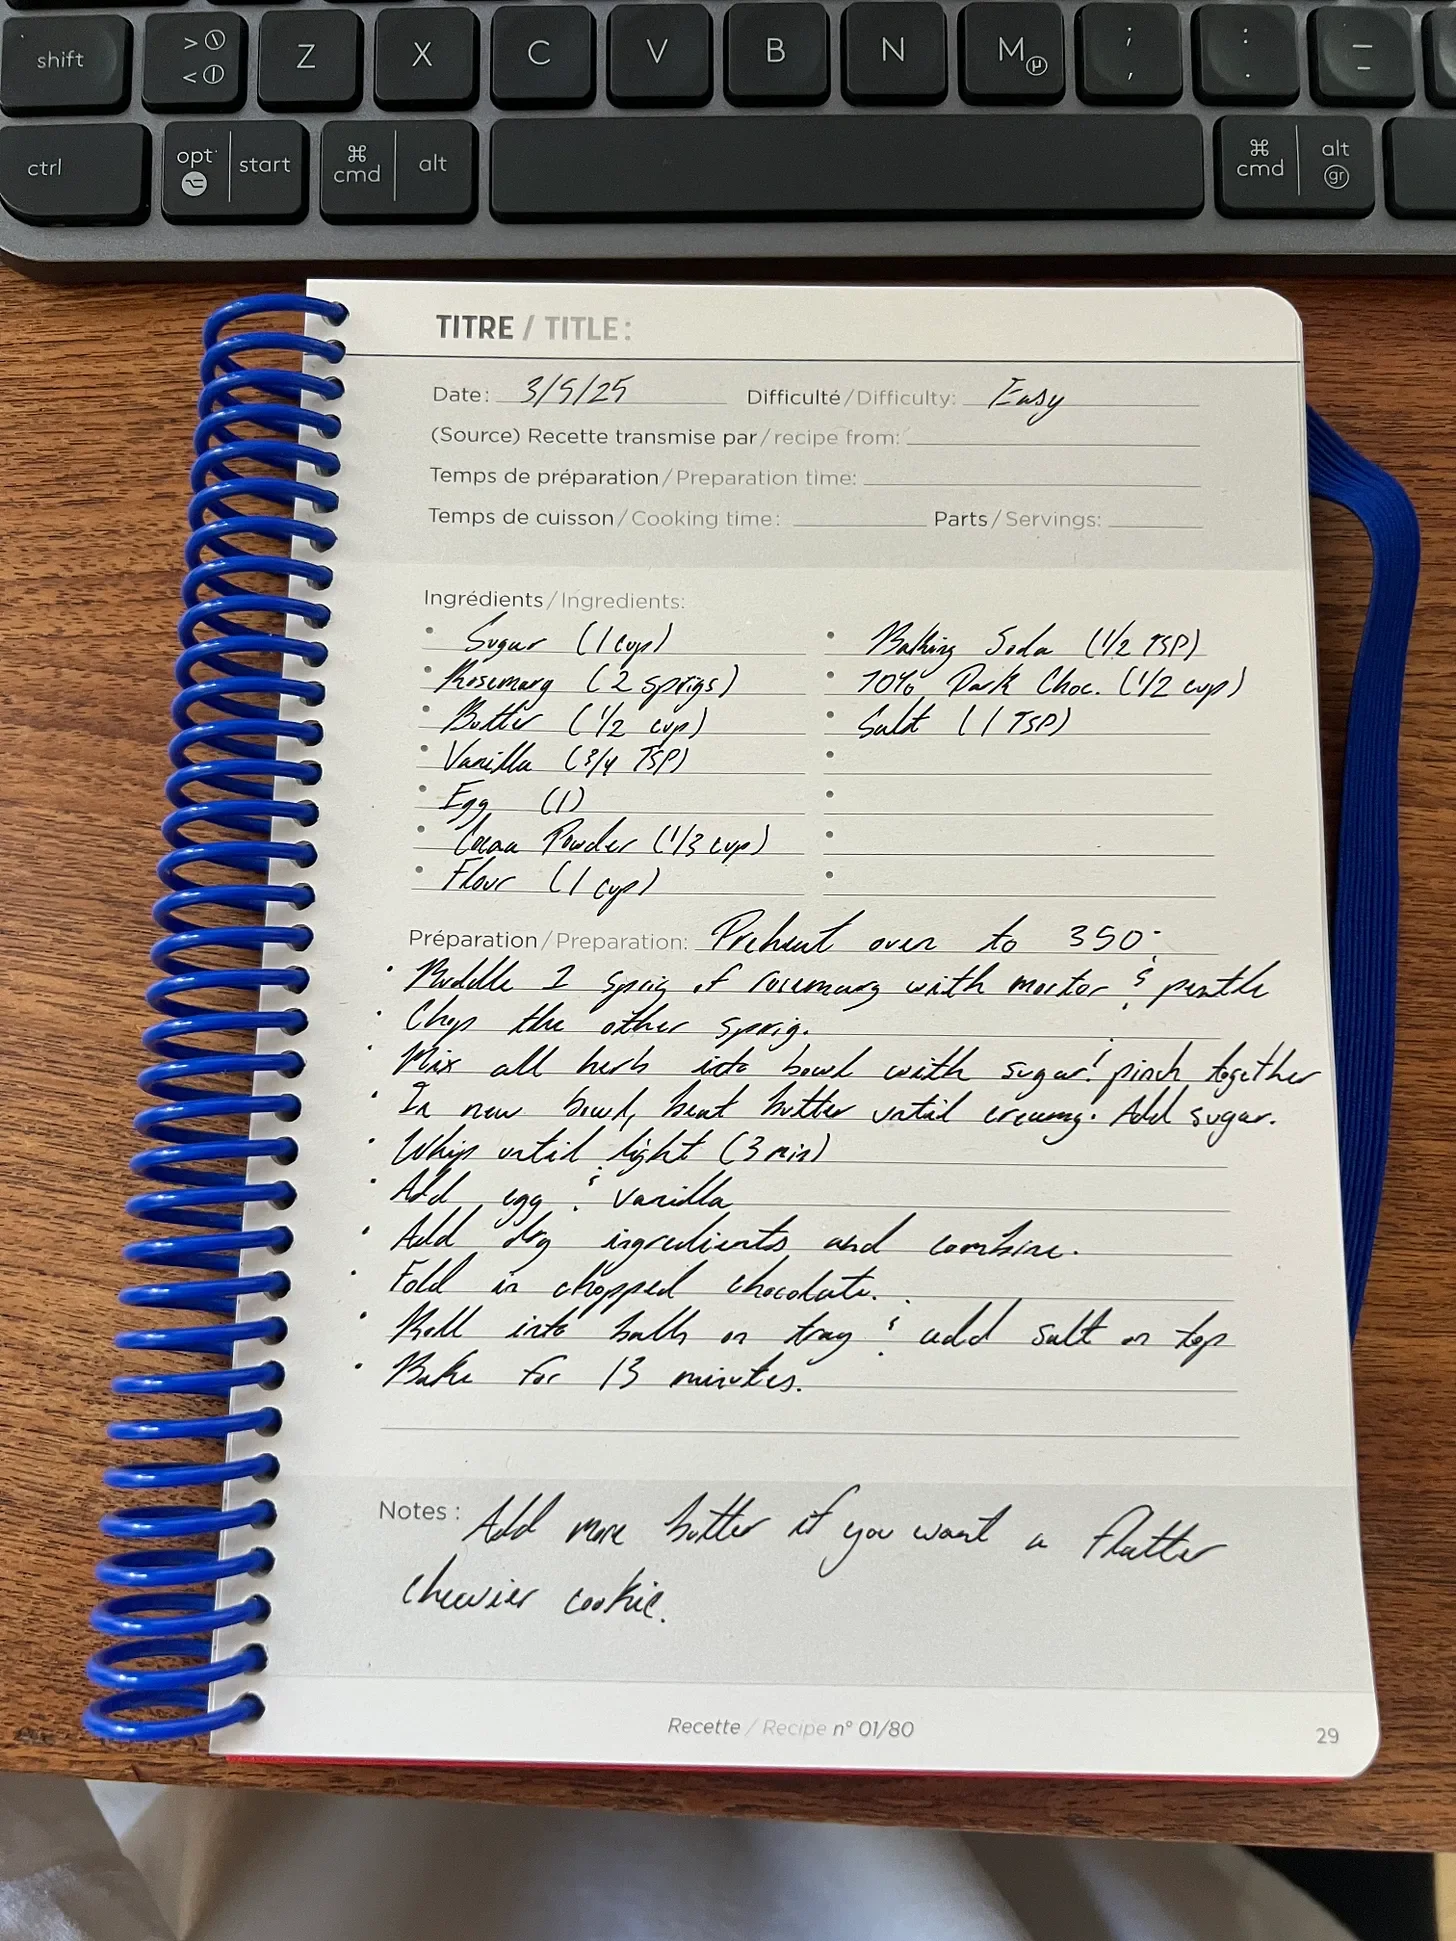 shift > < Z X C V B N M µ ; , : . _ -
ctrl opt start ⌘ cmd alt ⌘ cmd alt gr
TITRE / TITLE:
Date: 3/5/25 Difficulté / Difficulty: Easy
(Source) Recette transmise par / recipe from:
Temps de préparation / Preparation time:
Temps de cuisson / Cooking time: Parts / Servings:
Ingrédients / Ingredients:
• Sugar (1 cup)
• Rosemary (2 sprigs)
• Butter (1/2 cup)
• Vanilla (3/4 TSP)
• Egg (1)
• Cocoa Powder (1/3 cup)
• Flour (1 cup)
• Baking Soda (1/2 TSP)
• 70% Dark Choc. (1/2 cup)
• Salt (1 TSP)
Préparation / Preparation: Preheat oven to 350°
• Muddle 1 sprig of rosemary with mortar & pestle
• Chop the other sprig.
• Mix all herb into bowl with sugar & pinch together
• In new bowl, beat butter until creamy. Add sugar.
• Whip until light (3 min)
• Add egg & vanilla
• Add dry ingredients and combine.
• Fold in chopped chocolate.
• Roll into balls on tray & add salt on top
• Bake for 13 minutes.
Notes: Add more butter if you want a flatter
chewier cookie.
Recette / Recipe n° 01/80
29